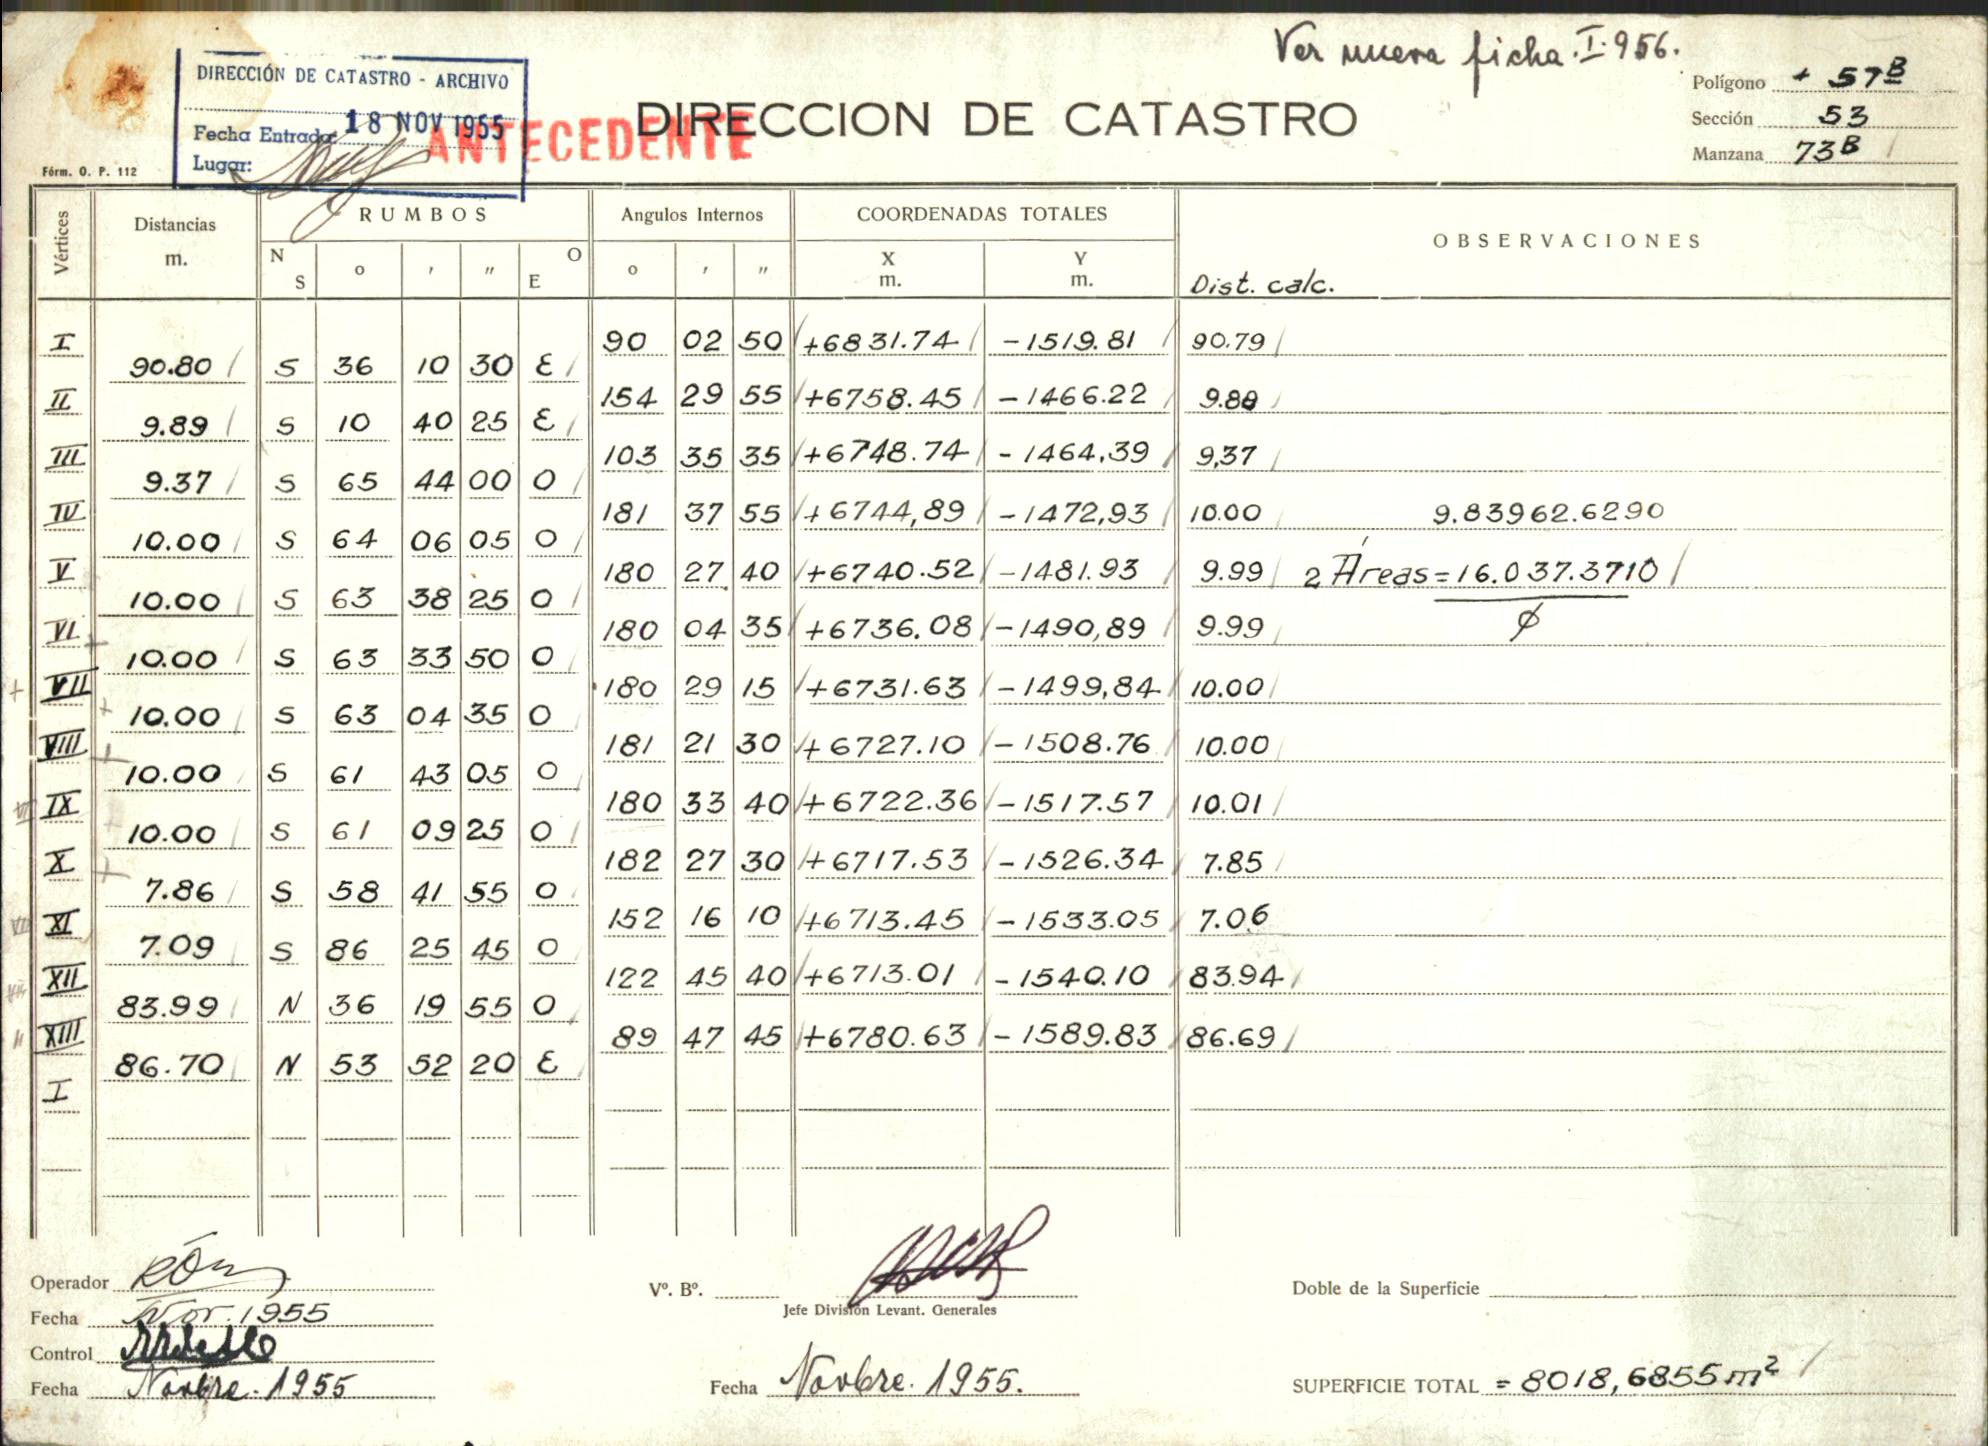 Ver nueva ficha. I. 956.
DIRECCIÓN DE CATASTRO - ARCHIVO
Fecha Entrada: 18 NOV 1955
Lugar:
ANTECEDENTE
DIRECCION DE CATASTRO
Polígono + 57B
Sección 53
Manzana 73B
Fórm. O. P. 112
Vértices Distancias m. RUMBOS Angulos Internos COORDENADAS TOTALES OBSERVACIONES
N S o ' " O E o ' " X m. Y m. Dist. calc.
I 90 02 50 +6831.74 -1519.81 90.79
90.80 S 36 10 30 E
II 154 29 55 +6758.45 -1466.22 9.88
9.89 S 10 40 25 E
III 103 35 35 +6748.74 -1464,39 9,37
9.37 S 65 44 00 O
IV 181 37 55 +6744,89 -1472,93 10.00 9.83962.6290
10.00 S 64 06 05 O
V 180 27 40 +6740.52 -1481.93 9.99 2 Áreas=16.037.3710
10.00 S 63 38 25 O
VI 180 04 35 +6736.08 -1490,89 9.99 ϕ
10.00 S 63 33 50 O
VII 180 29 15 +6731.63 -1499,84 10.00
10.00 S 63 04 35 O
VIII 181 21 30 +6727.10 -1508.76 10.00
10.00 S 61 43 05 O
IX 180 33 40 +6722.36 -1517.57 10.01
10.00 S 61 09 25 O
X 182 27 30 +6717.53 -1526.34 7.85
7.86 S 58 41 55 O
XI 152 16 10 +6713.45 -1533.05 7.06
7.09 S 86 25 45 O
XII 122 45 40 +6713.01 -1540.10 83.94
83.99 N 36 19 55 O
XIII 89 47 45 +6780.63 -1589.83 86.69
86.70 N 53 52 20 E
I
Operador
Fecha Nov. 1955
Control
Fecha Novbre. 1955
Vº. Bº.
Jefe División Levant. Generales
Fecha Novbre. 1955.
Doble de la Superficie
SUPERFICIE TOTAL = 8018,6855 m²